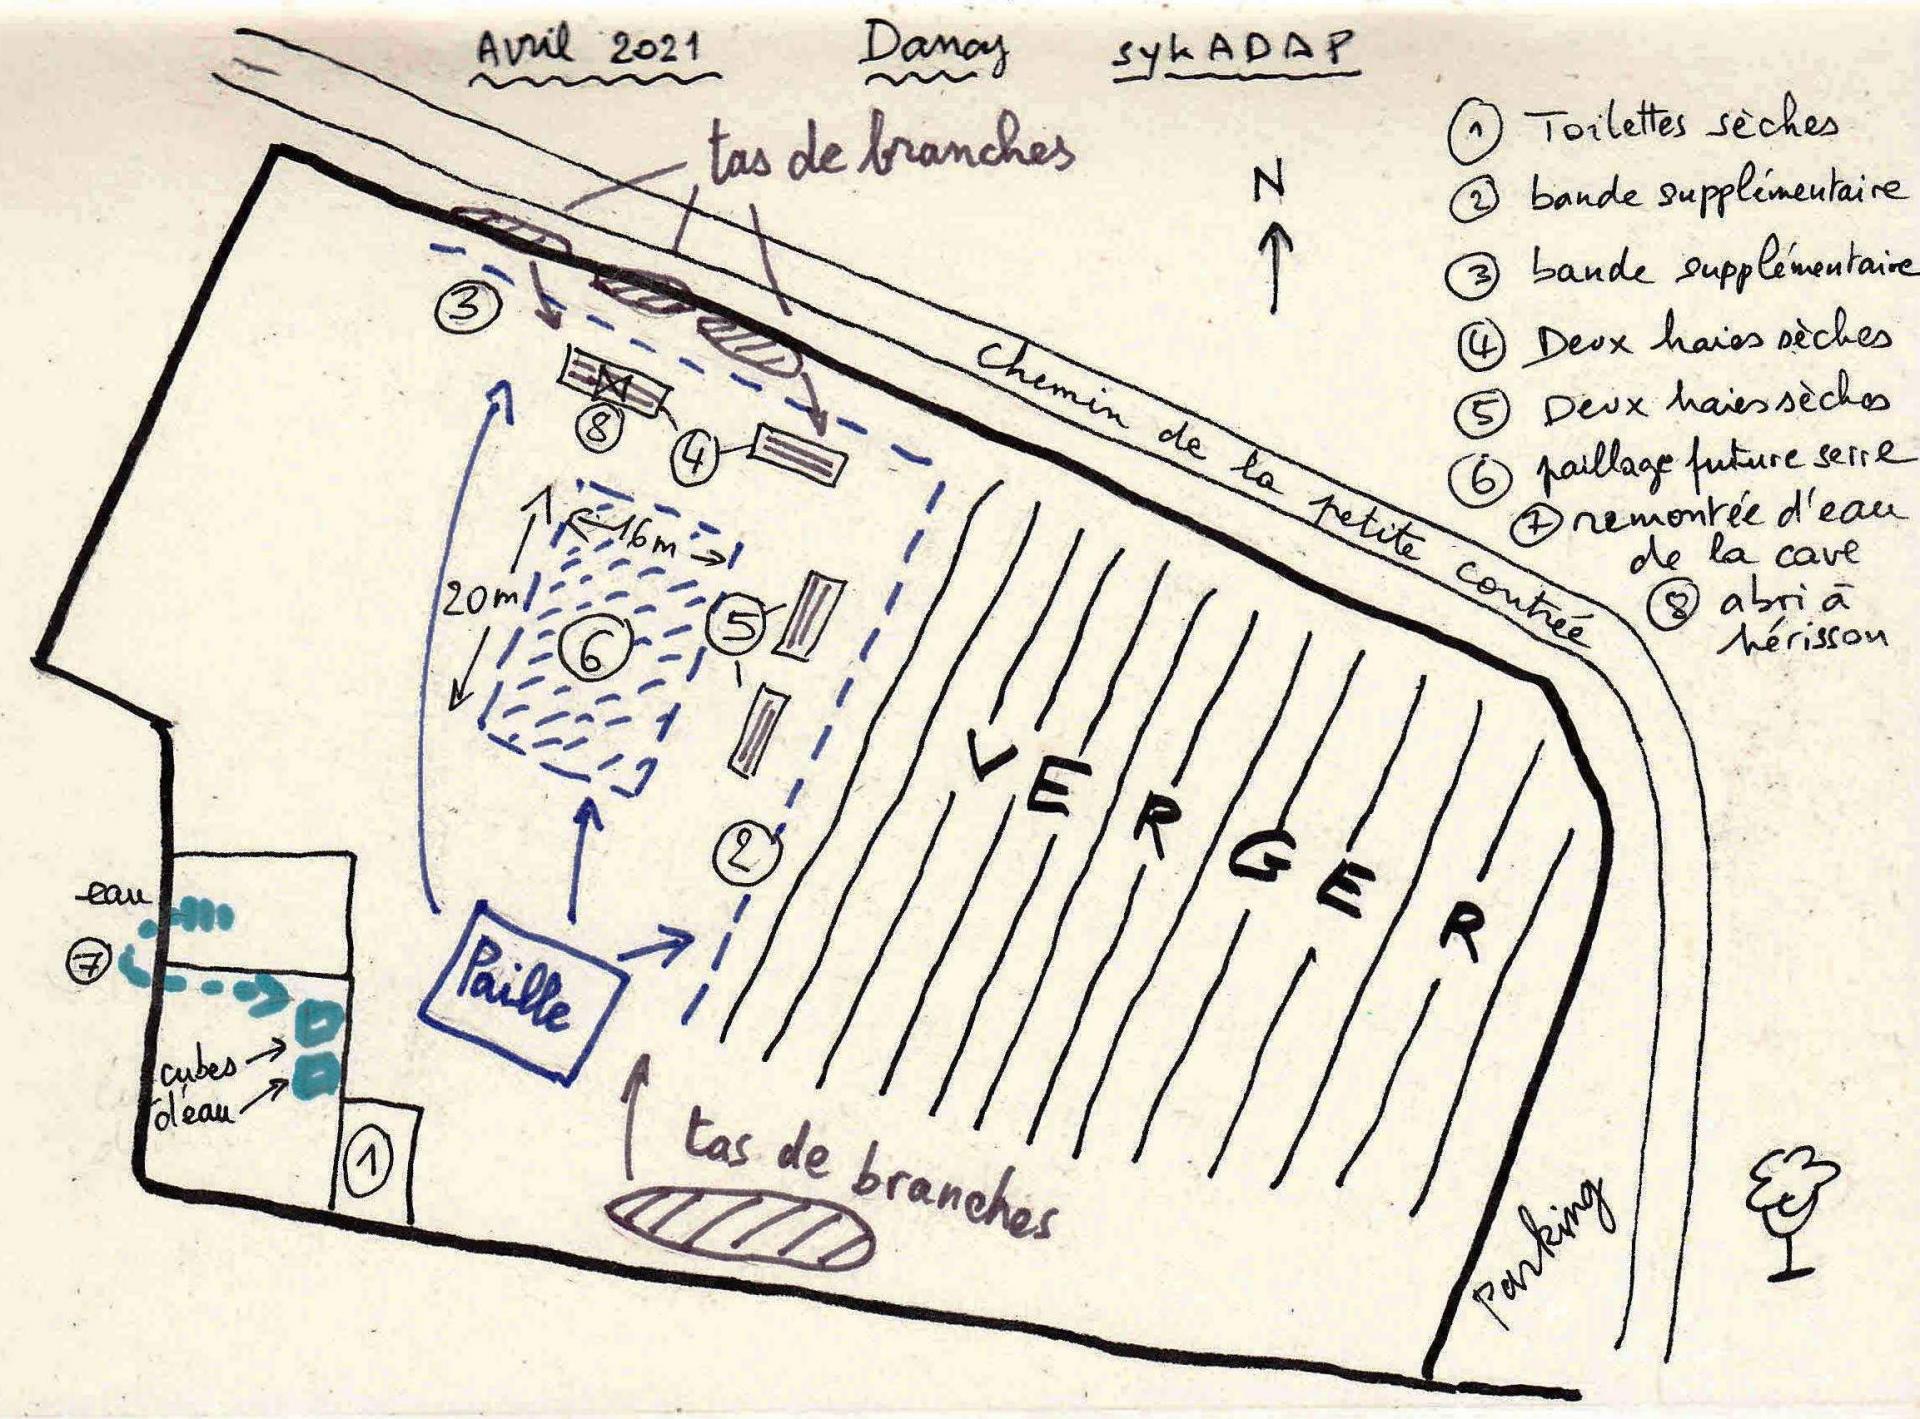 Avril 2021 Danoy sykADAP
tas de branches
N
① Toilettes sèches
② bande supplémentaire
③ bande supplémentaire
④ Deux haies sèches
⑤ Deux haies sèches
⑥ paillage future serre
⑦ remontée d'eau
de la cave
⑧ abri à
hérisson
Chemin de la petite contrée
③
⑧
④
16m
20m
⑤
⑥
VERGER
②
eau
⑦
Paille
cubes
d'eau
①
tas de branches
Parking